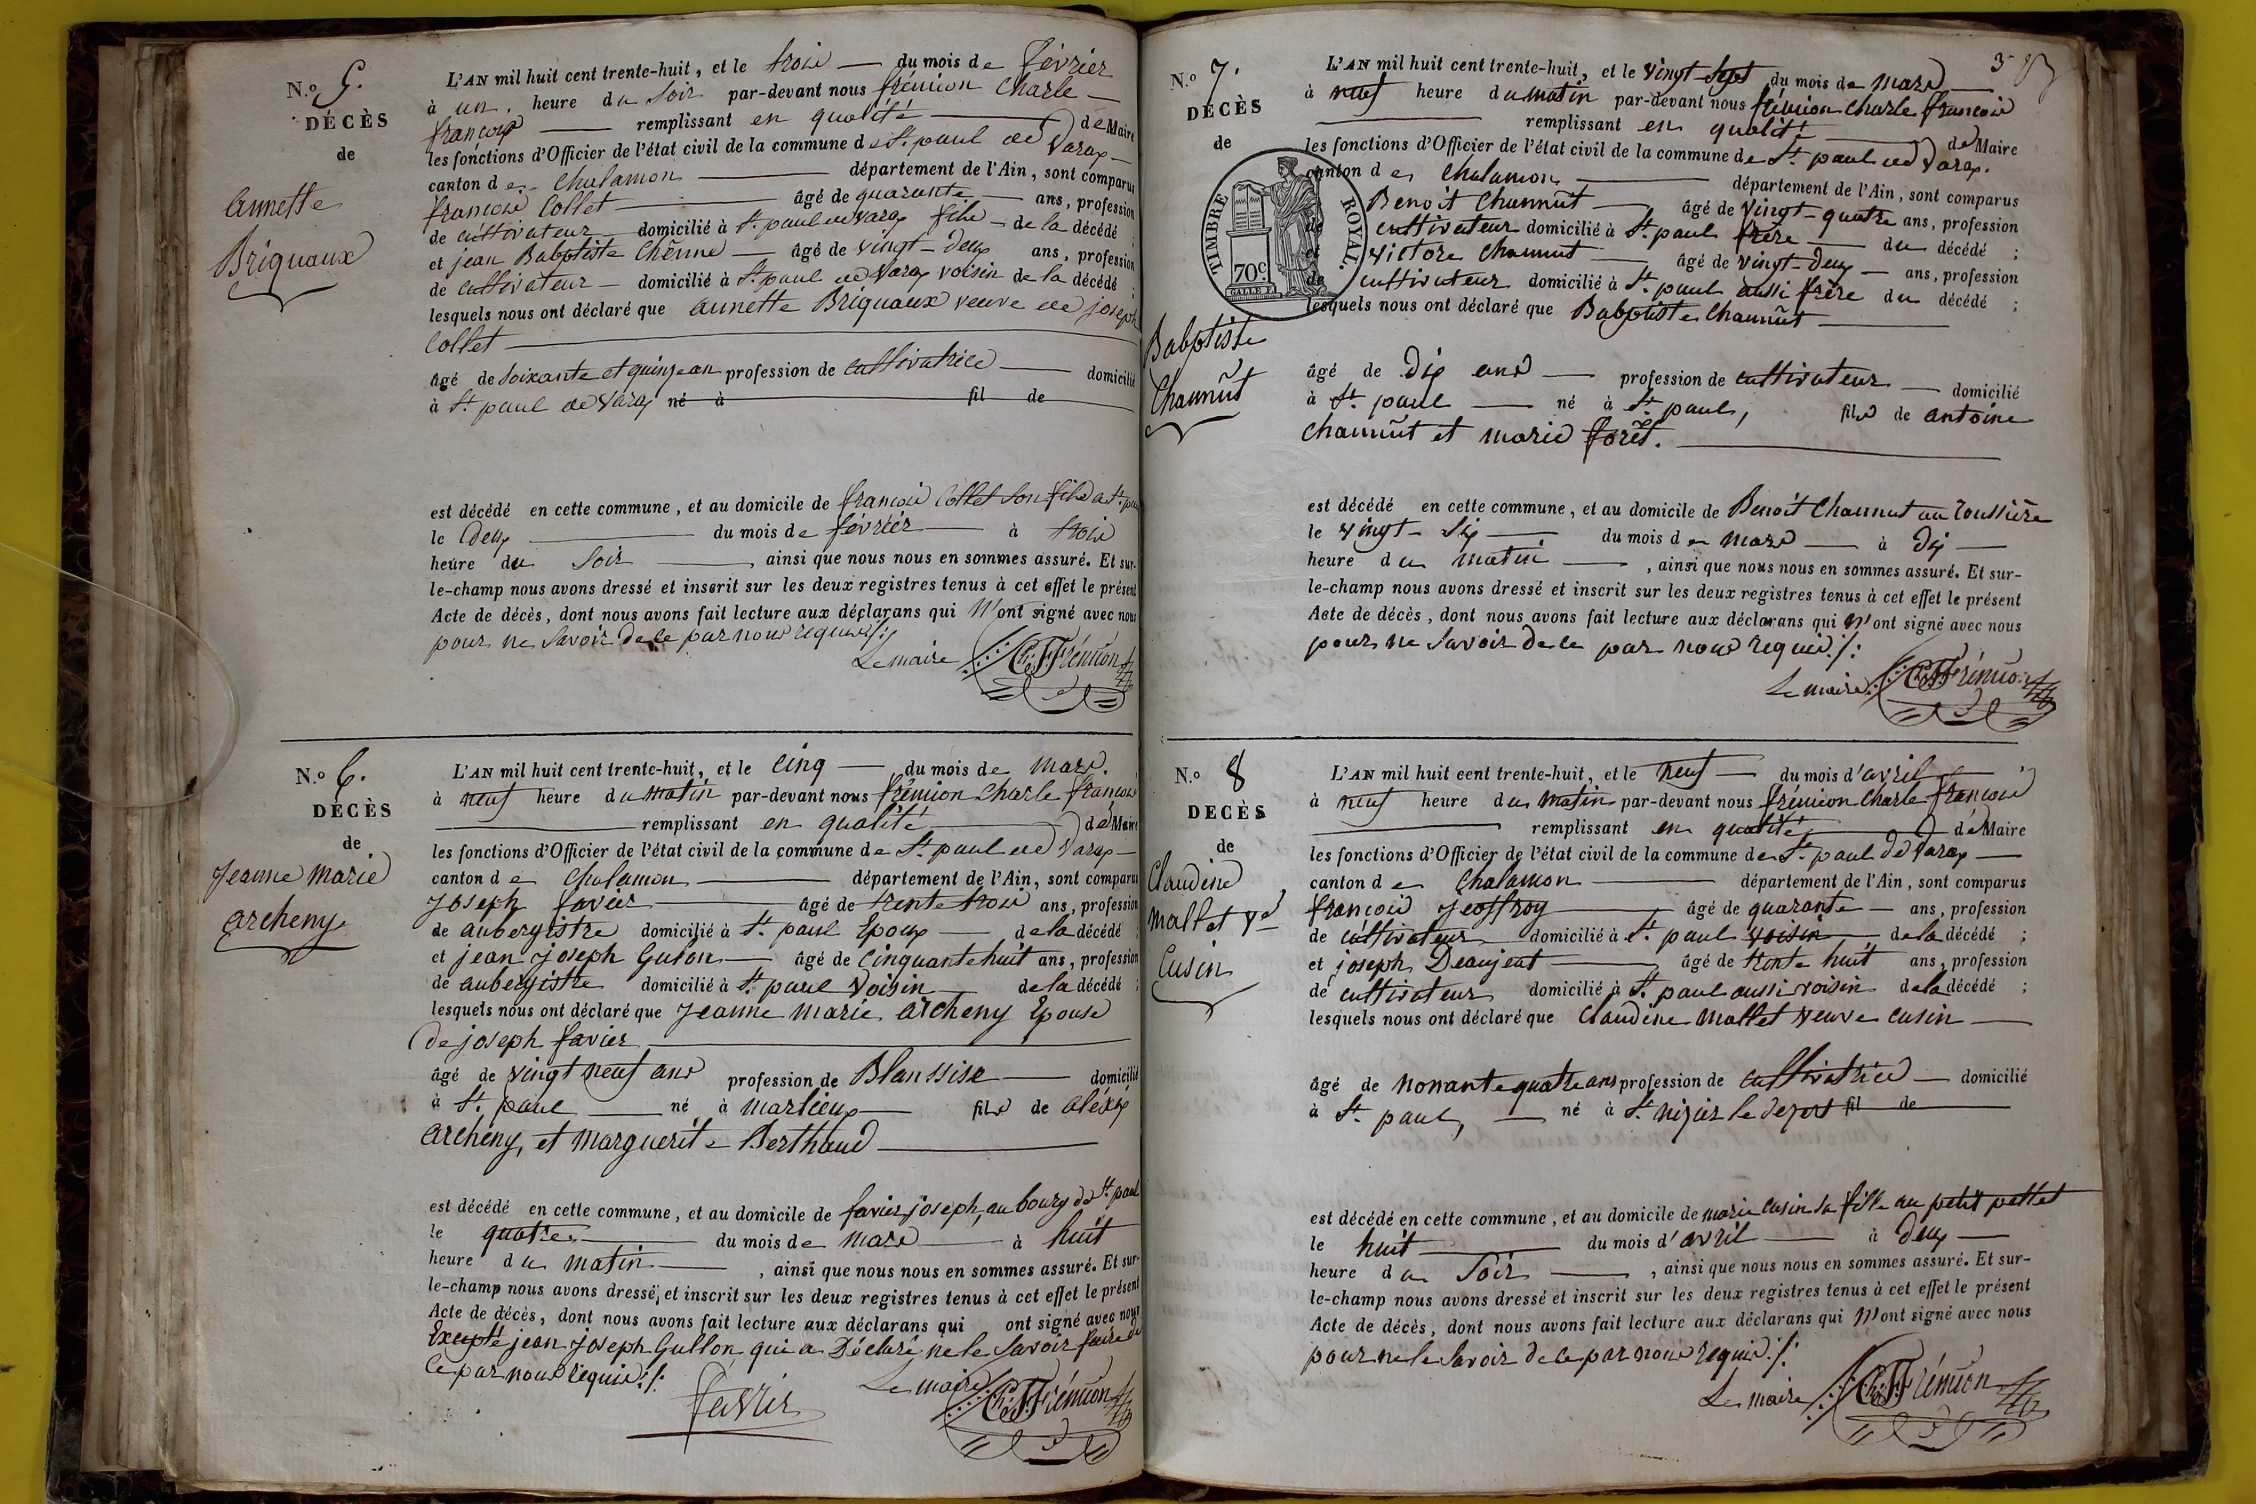 N.o 5.
DÉCÈS
de
Annette
Briquaux
L'AN mil huit cent trente-huit, et le trois du mois de février
à un. heure du Soir par-devant nous frémion Charle
françois remplissant en qualité de Maire
les fonctions d'Officier de l'état civil de la commune de St. paul de Varax
canton de Chalamon département de l'Ain, sont comparus
françois Collet âgé de quarante ans, profession
de cultivateur domicilié à St. paul de Varax fils de la décédé ;
et jean Babptiste Chênne âgé de vingt-deux ans, profession
de cultivateur domicilié à St. paul de Varax voisin de la décédé ;
lesquels nous ont déclaré que annette Briquaux veuve de joseph
Collet
âgé de Soixante et quinze an profession de cultivatrice domicilié
à St. paul de Varax né à fil de
est décédé en cette commune, et au domicile de françois Collet son fils a St.
le deux du mois de février à trois
heure du Soir, ainsi que nous nous en sommes assuré. Et sur-
le-champ nous avons dressé et inscrit sur les deux registres tenus à cet effet le présent
Acte de décès, dont nous avons fait lecture aux déclarans qui N'ont signé avec nous
pour ne Savoir de ce par nous requis ./.
Le maire Ch. F. Frémion
N.o 6.
DÉCÈS
de
Jeanne Marie
archeny
L'AN mil huit cent trente-huit, et le cinq du mois de mars.
à neuf heure du matin par-devant nous frémion Charle françois
remplissant en qualité de Maire
les fonctions d'Officier de l'état civil de la commune de St. paul de Varax
canton de Chalamon département de l'Ain, sont comparus
Joseph favier âgé de trente trois ans, profession
de aubergistre domicilié à St. paul Epoux de la décédé ;
et jean joseph Gulon âgé de Cinquante huit ans, profession
de aubergistre domicilié à St. paul Voisin de la décédé ;
lesquels nous ont déclaré que Jeanne marie archeny Epouse
De joseph favier
âgé de vingt neuf ans profession de Blanssise domicilié
à St. paul né à marlieux fils de aléxis
archeny, et marguerite Berthaud
est décédé en cette commune, et au domicile de favier joseph, au bourg de St. paul
le quatre du mois de mars à huit
heure du matin, ainsi que nous nous en sommes assuré. Et sur-
le-champ nous avons dressé, et inscrit sur les deux registres tenus à cet effet le présent
Acte de décès, dont nous avons fait lecture aux déclarans qui ont signé avec nous
Excepté jean joseph Gullon qui a Déclaré ne le Savoir faire de
Ce par nous requis ./.
favier
Le maire Ch. F. Frémion
N.o 7.
DÉCÈS
de
TIMBRE ROYAL.
70c.
Babptiste
Chaunût
L'AN mil huit cent trente-huit, et le vingt-sept du mois de mars
à neuf heure du matin par-devant nous frémion Charle françois
remplissant en qualité de Maire
les fonctions d'Officier de l'état civil de la commune de St. paul de Varax.
canton de Chalamon département de l'Ain, sont comparus
Benoit Chaunût âgé de vingt-quatre ans, profession
de cultivateur domicilié à St. paul frère du décédé ;
et victore Chaunut âgé de vingt-deux ans, profession
de cultivateur domicilié à St. paul aussi frère du décédé ;
lesquels nous ont déclaré que Babptiste Chaunût
âgé de Dix ans profession de cultivateur domicilié
à St. paul né à St. paul, fils de antoine
Chaunût et marie forêt.
est décédé en cette commune, et au domicile de Benoit Chaunut au
le vingt-six du mois de mars à dix
heure du matin, ainsi que nous nous en sommes assuré. Et sur-
le-champ nous avons dressé et inscrit sur les deux registres tenus à cet effet le présent
Acte de décès, dont nous avons fait lecture aux déclarans qui N'ont signé avec nous
pour ne Savoir de ce par nous requis ./.
Le maire Ch. F. Frémion
N.o 8
DÉCÈS
de
Claudine
Mallet Ve
Cusin
L'AN mil huit cent trente-huit, et le neuf du mois d'avril
à neuf heure du matin par-devant nous frémion Charle françois
remplissant en qualité de Maire
les fonctions d'Officier de l'état civil de la commune de St. paul de Varax
canton de Chalamon département de l'Ain, sont comparus
françois Jeoffroy âgé de quarante ans, profession
de cultivateur domicilié à St. paul voisin de la décédé ;
et joseph Deaujeat âgé de trente huit ans, profession
de cultivateur domicilié à St. paul aussi voisin de la décédé ;
lesquels nous ont déclaré que Claudine Mallet veuve cusin
âgé de nonante quatre ans profession de cultivatrice domicilié
à St. paul, né à St. nizier le desert fil de
est décédé en cette commune, et au domicile de marie cusin sa fille au petit pellet
le huit du mois d'avril à deux
heure du Soir, ainsi que nous nous en sommes assuré. Et sur-
le-champ nous avons dressé et inscrit sur les deux registres tenus à cet effet le présent
Acte de décès, dont nous avons fait lecture aux déclarans qui N'ont signé avec nous
pour ne le Savoir de ce par nous requis ./.
Le maire Ch. F. Frémion